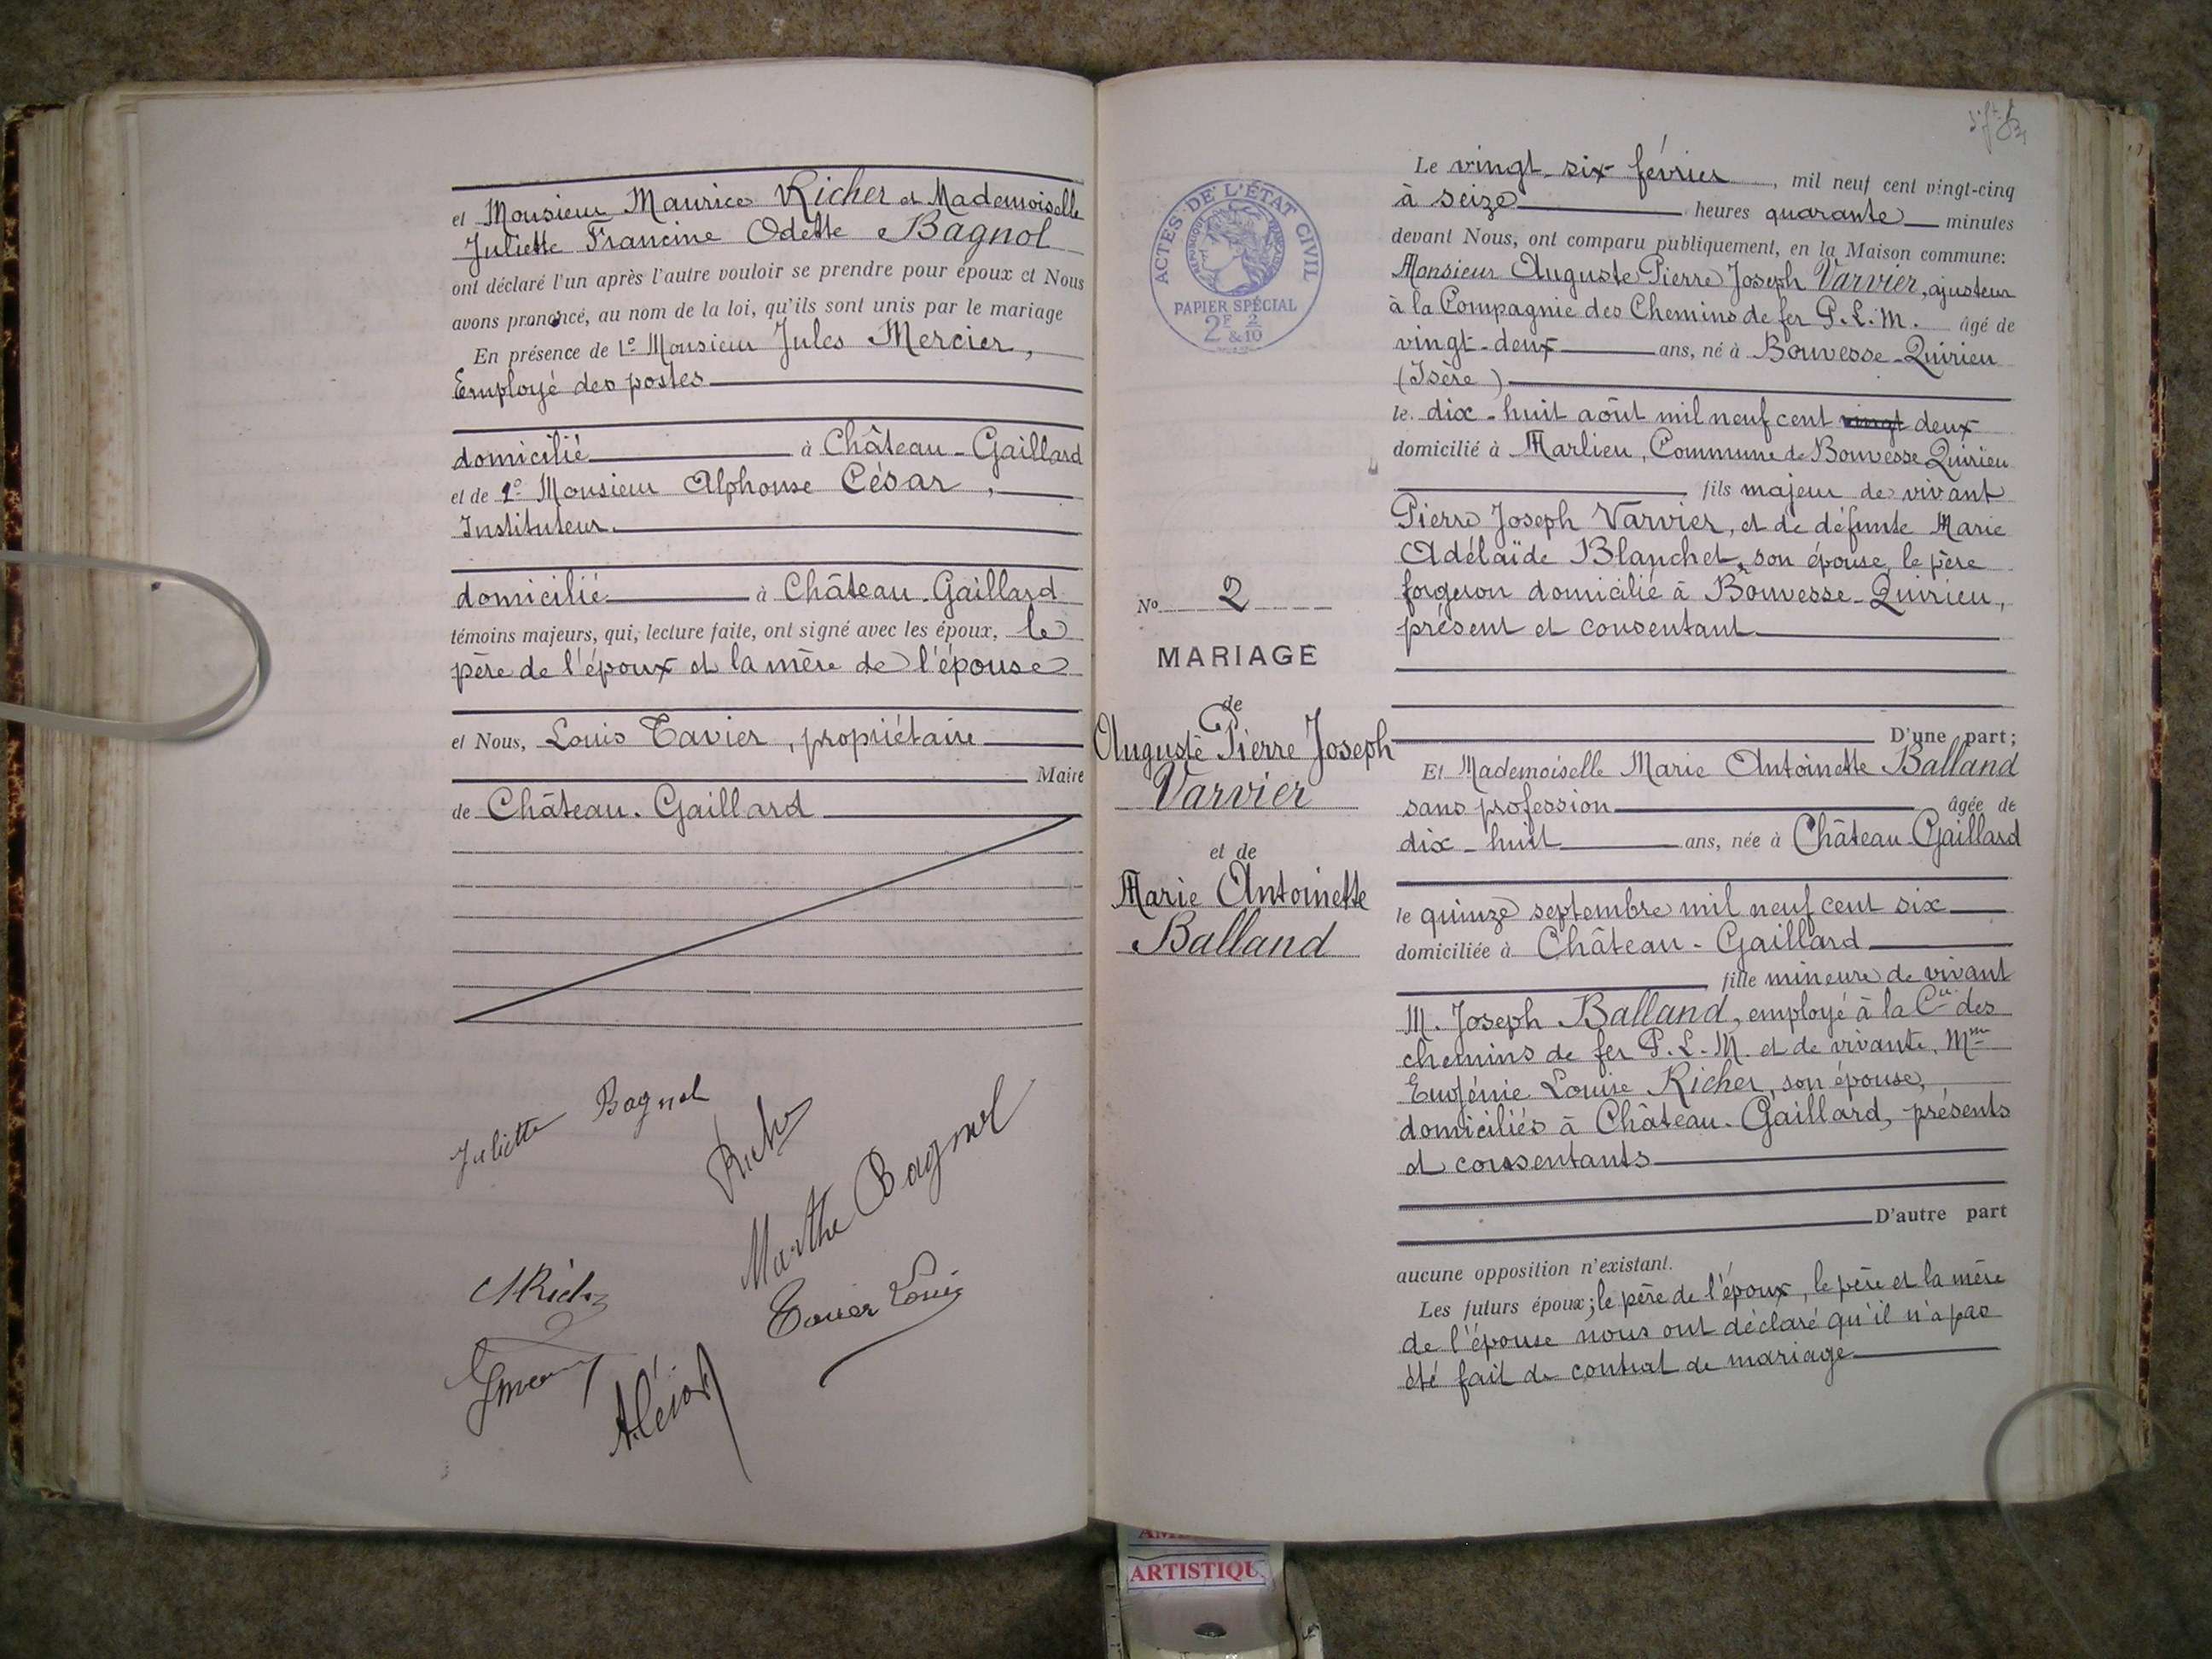 et Monsieur Maurice Richer et Mademoiselle
Juliette Francine Odette Bagnol
ont déclaré l'un après l'autre vouloir se prendre pour époux et Nous
avons prononcé, au nom de la loi, qu'ils sont unis par le mariage
En présence de 1º Monsieur Jules Mercier,
Employé des postes
domicilié à Château-Gaillard
et de 2º Monsieur Alphonse César,
Instituteur.
domicilié à Château-Gaillard
témoins majeurs, qui, lecture faite, ont signé avec les époux, le
père de l'époux et la mère de l'épouse
et Nous, Louis Tavier, propriétaire
Maire
de Château-Gaillard
Juliette Bagnol
Marthe Bagnol
Louis
ACTES DE L'ÉTAT CIVIL
RÉPUBLIQUE FRANÇAISE
PAPIER SPÉCIAL
2E 2
& 10
No 2
MARIAGE
de
Auguste Pierre Joseph
Varvier
et de
Marie Antoinette
Balland
Le vingt-six février, mil neuf cent vingt-cinq
à seize heures quarante minutes
devant Nous, ont comparu publiquement, en la Maison commune:
Monsieur Auguste Pierre Joseph Varvier, ajusteur
à la Compagnie des Chemins de fer P.L.M. âgé de
vingt-deux ans, né à Bouvesse-Quirieu
(Isère)
le dix-huit août mil neuf cent vingt deux
domicilié à Marlieu, Commune de Bouvesse Quirieu
fils majeur de vivant
Pierre Joseph Varvier, et de défunte Marie
Adélaïde Blanchet, son épouse, le père
forgeron domicilié à Bouvesse-Quirieu,
présent et consentant
D'une part;
Et Mademoiselle Marie Antoinette Balland
sans profession âgée de
dix-huit ans, née à Château-Gaillard
le quinze septembre mil neuf cent six
domiciliée à Château-Gaillard
fille mineure de vivant
M. Joseph Balland, employé à la Cie des
chemins de fer P.L.M. et de vivante, Mme
Eugénie Louise Richer, son épouse,
domiciliés à Château-Gaillard, présents
et consentants
D'autre part
aucune opposition n'existant.
Les futurs époux; le père de l'époux, le père et la mère
de l'épouse nous ont déclaré qu'il n'a pas
été fait de contrat de mariage
ARTISTIQU